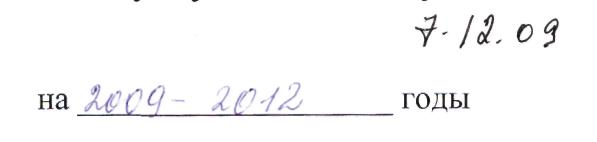 7.12.09
на 2009- 2012 годы